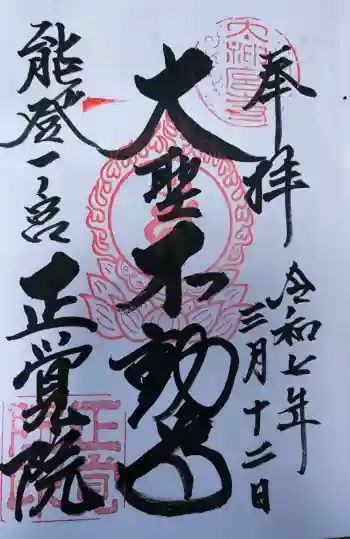 奉拝
令和七年
三月十二日
大聖不動尊
能登一ノ宮
正覚院
正覚院